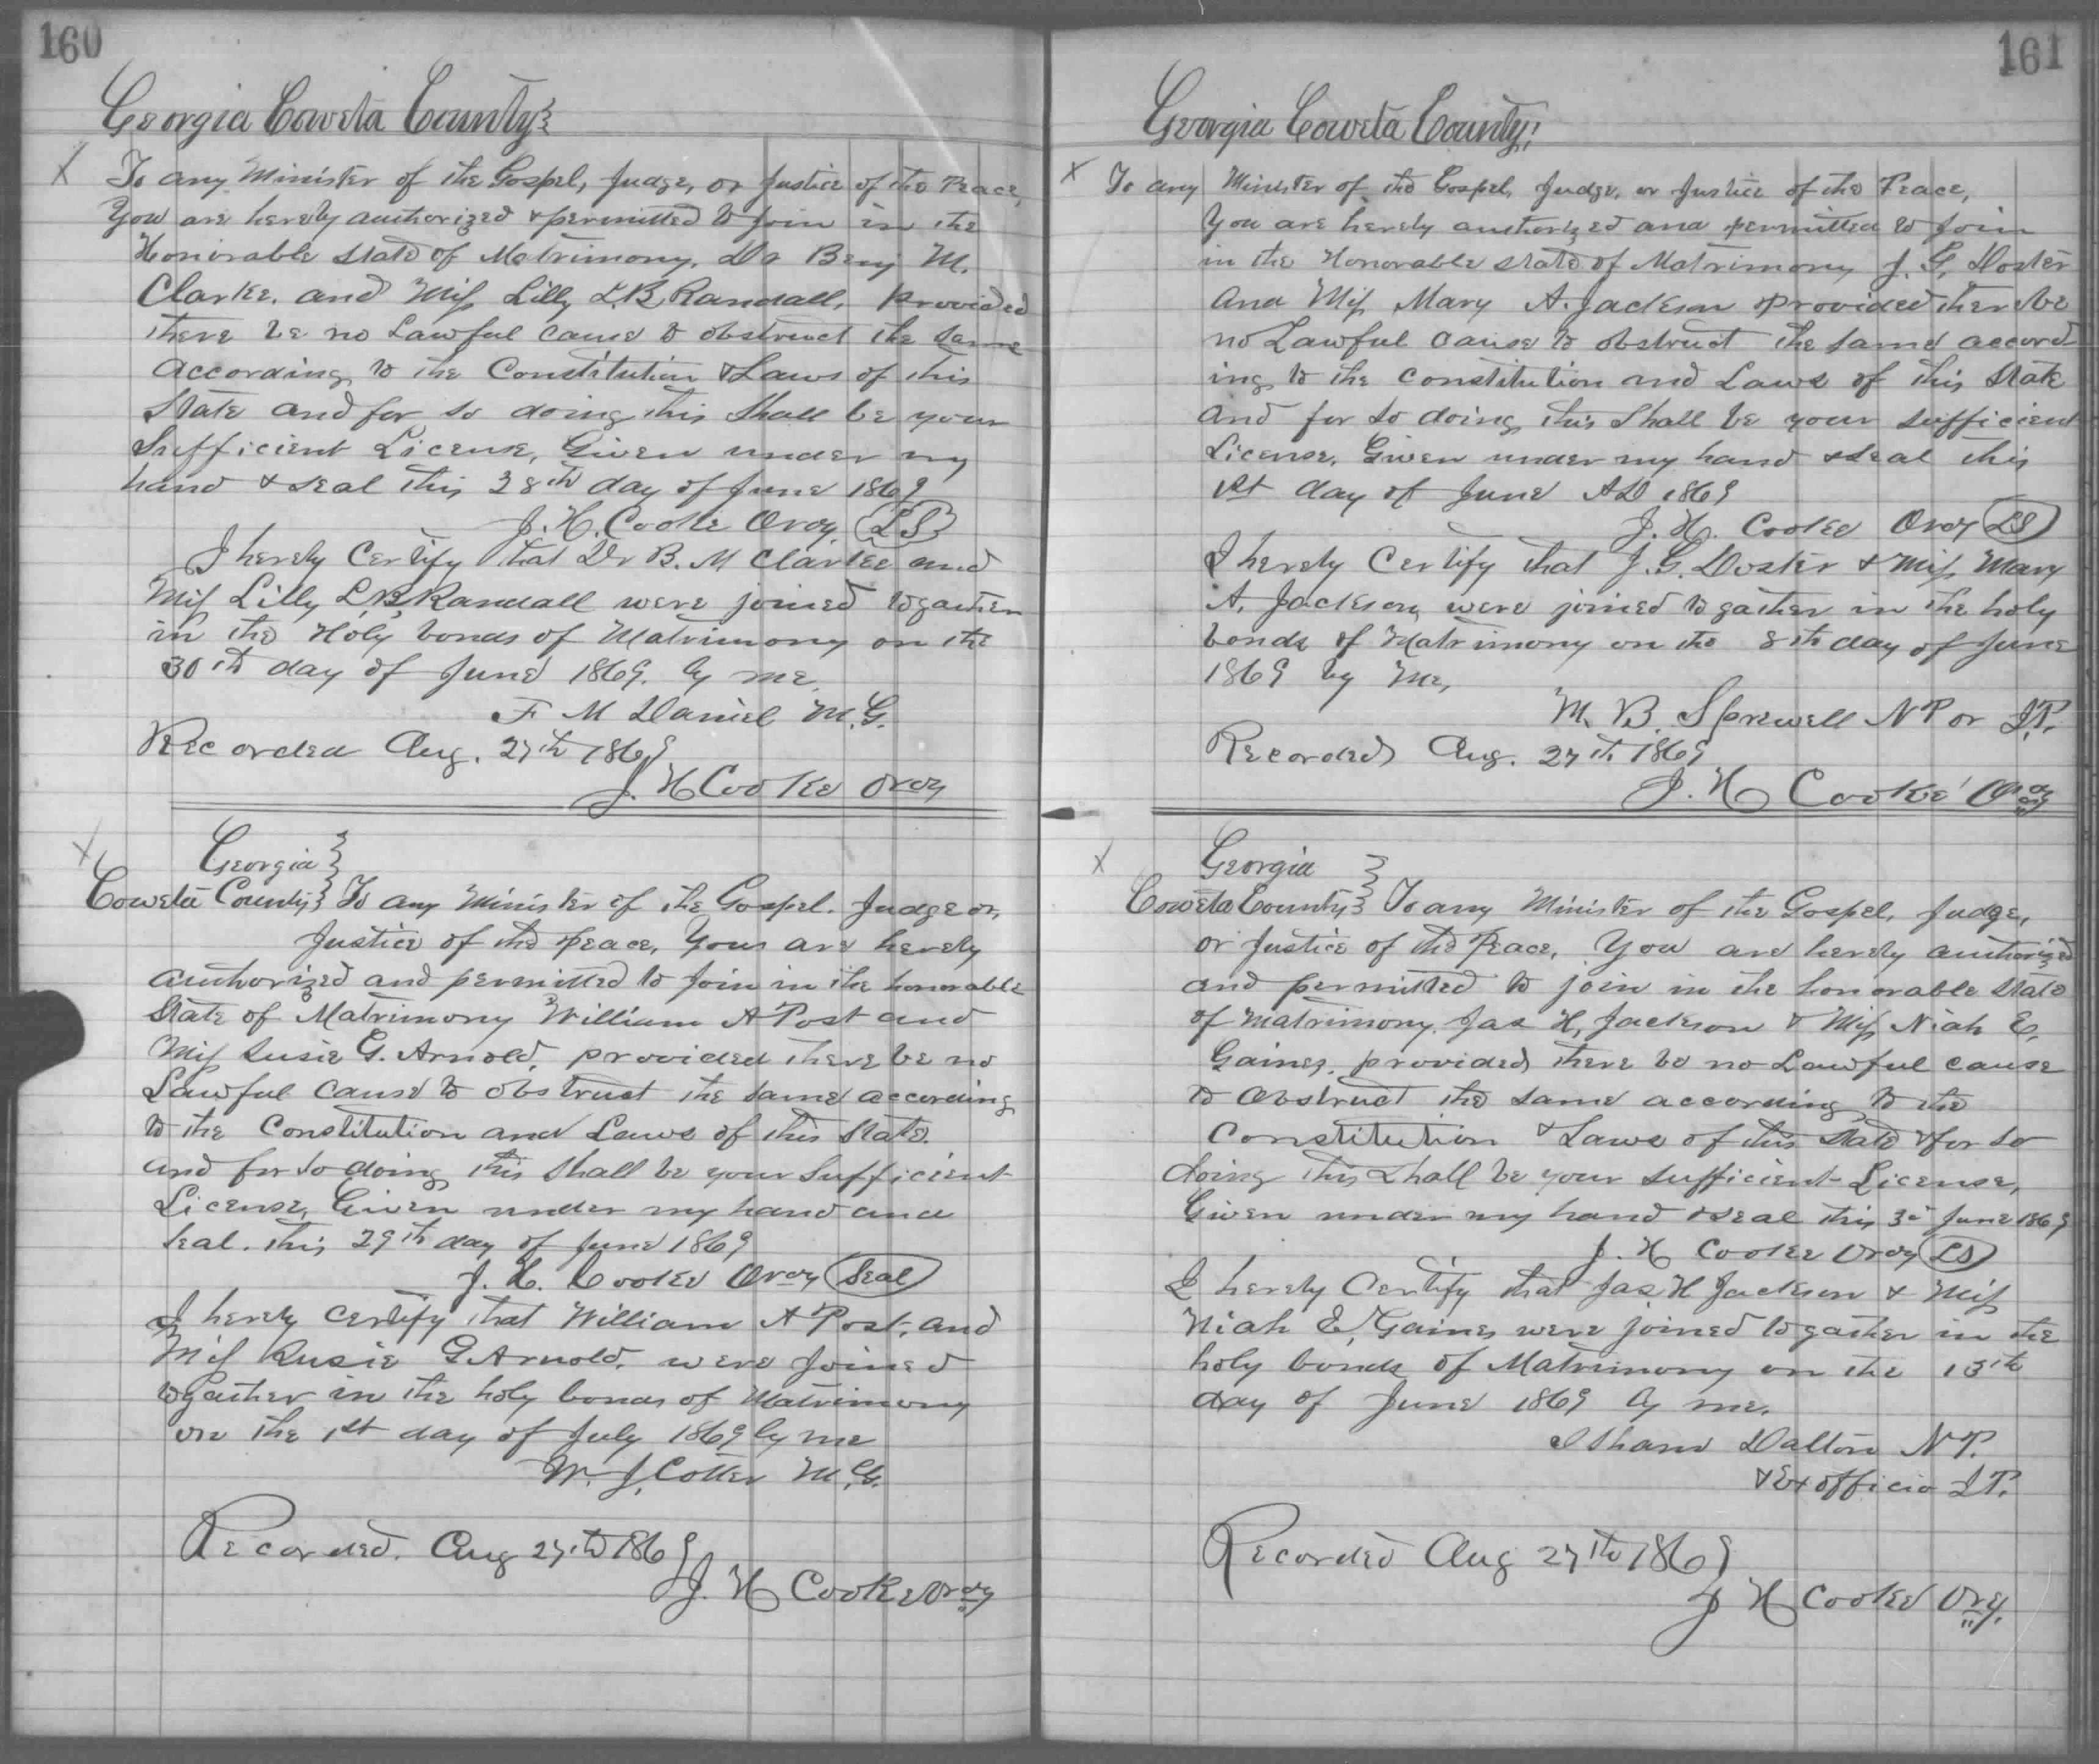 160
Georgia Coweta County
X To any Minister of the Gospel, Judge, or Justice of the Peace,
You are hereby authorized & permitted to join in the
Honorable State of Matrimony, Dr Benj M.
Clarke. and Miss Lilly L.B. Randall, provided
there be no Lawful cause to obstruct the same
according to the Constitution & Laws of this
State and for so doing this Shall be your
Sufficient License, Given under my
hand & seal this 28th day of June 1869
J. H. Cooke Ordy (LS)
I hereby Certify that Dr B. M Clarke and
Miss Lilly L.B. Randall were joined togather
in the Holy bonds of Matrimony on the
30th day of June 1869. by me.
F M Daniel M.G.
Recorded Aug. 27th 1869
J. H Cooke Ordy
X Georgia
Coweta County To any Minister of the Gospel. Judge or,
Justice of the Peace, Your are hereby
authorized and permitted to Join in the honorable
State of Matrimony William A Post and
Miss Susie G. Arnold, provided there be no
Lawful cause to obstruct the same according
to the Constitution and Laws of this State.
and for so doing this Shall be your Sufficient
License, Given under my hand and
Seal. this 29th day of June 1869
J. H. Cooke Ordy (Seal)
I hereby certify that William A Post, and
Miss Susie G Arnold, were joined
togather in the holy bonds of Matrimony
on the 1st day of July 1869 by me
W. J. Cotter M.G.
Recorded. Aug 27th 1869
J. H Cooke Ordy
161
Georgia Coweta County,
X To any Minister of the Gospel, Judge, or Justice of the Peace,
You are hereby authorized and permitted to join
in the Honorable state of Matrimony J. G. Doster
and Miss Mary A. Jackson provided ther be
no Lawful cause to obstruct the same accord
ing to the constitution and Laws of this State
and for so doing this Shall be your sufficient
License. Given under my hand & seal this
1st day of June AD 1869
J. H. Cooke Ordy (LS)
I hereby Certify that J. G. Doster & Miss Mary
A. Jackson, were joined togather in the holy
bonds of Matrimony on the 8th day of June
1869 by Me,
M. B. Sprewell N P or J.P.
Recorded Aug. 27th 1869
J. H Cooke Ordy
X Georgia
Coweta County To any Minister of the Gospel, Judge,
or Justice of the Peace, You are hereby authorized
and permitted to join in the honorable State
of Matrimony. Jas H, Jackson & Miss Niah E,
Gaines, provided there be no Lawful cause
to Obstruct the same according to the
Constitution & Laws of this State & for so
doing this shall be your sufficient License,
Given under my hand & seal this 3d June 1869
J. H Cooke Ordy (LS)
I hereby Certify that Jas H Jackson & Miss
Niah E, Gaines were joined togather in the
holy bonds of Matrimony on the 13th
day of June 1869 by me.
Isham Dalton N P.
& Ex officio J P.
Recorded Aug 27th 1869
J H Cooke Ory.